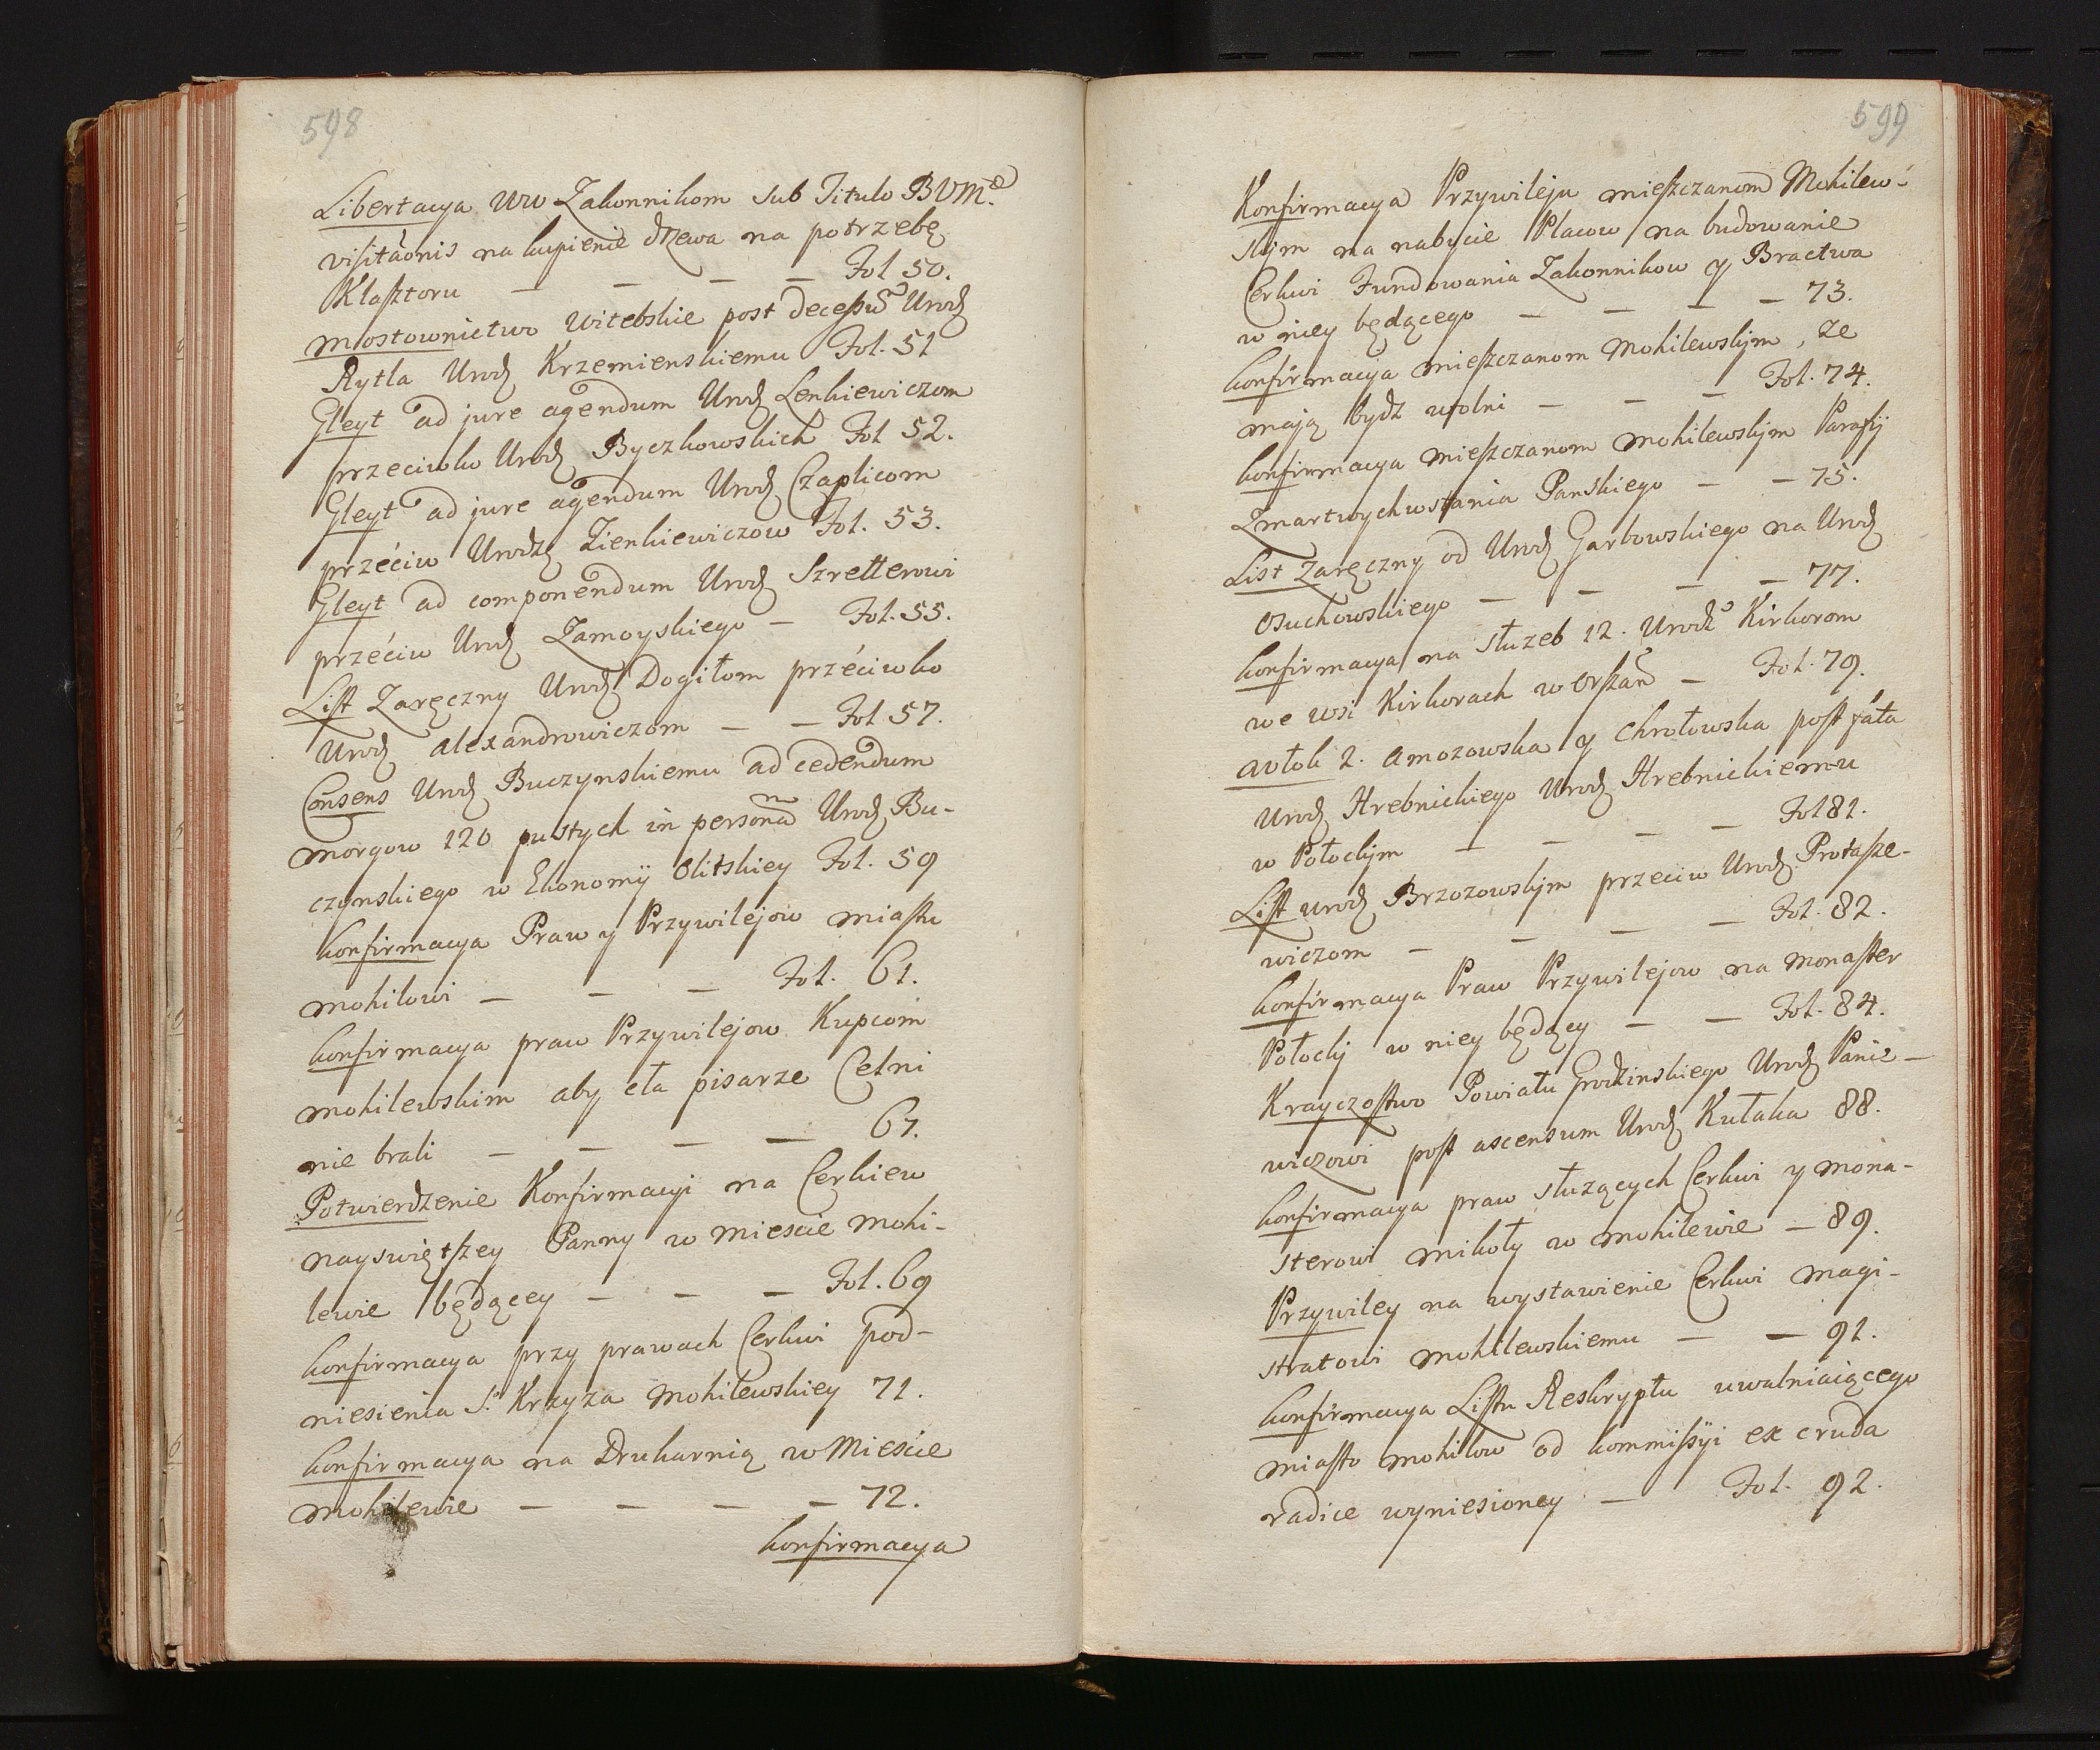 598
Libertacya Ww Zakonnikom sub Titulo BVMe
visitaonis na kupienie drzewa na potrzebę
Klasztoru — — — — Fol 50.
Mostownictwo Witebskie post decessu Urodz
Rytla Urodz Krzemienskiemu Fol. 51
Gleyt ad jure agendum Urodz Lenkiewiczom
przeciwko Urodz Byczkowskich Fol 52.
Gleyt ad jure agendum Urodz Czaplicom
przeciw Urodz Zienkiewiczow Fol. 53.
Gleyt ad componendum Urodz Szretterowi
przeciw Urodz Zamoyskiego — Fol. 55.
List Zaręczny Urodz Dogiłom przeciwko
Urodz Alexandrowiczom — — Fol 57.
Consens Urodz Buczynskiemu ad cedendum
morgow 120 pustych in personam Urodz Bu-
czynskiego w Ekonomÿ Olitskiey Fol. 59
konfirmacya Praw y Przywilejow miastu
Mohilowi — — — Fol. 61.
konfirmacya praw Przywilejow Kupcom
Mohilewskim aby cła pisarze Celni
nie brali — — — — 67.
Potwierdzenie Konfirmacyi na Cerkiew
Nayswiętszey Panny w miescie Mohi-
lewie będącey — — — Fol. 69
konfirmacya przy prawach Cerkwi pod-
niesienia S. Krzyza Mohilewskiey 71.
konfirmacya na Drukarnią w Mieście
Mohilewie — — — — 72.
konfirmacya
599
Konfirmacya Przywileju mieszczanom Mohilew-
skim na nabycie Placow na budowanie
Cerkwi Fundowania Zakonnikow y Bractwa
w niey będącego — — — — 73.
konfirmacya mieszczanom Mohilewskim, ze
mają bydz wolni — — — Fol. 74.
konfirmacya mieszczanom Mohilewskim Parafij
Zmartwychwstania Panskiego — — 75.
List Zaręczny od Urodz Garbowskiego na Urodz
Osuchowskiego — — — — 77.
konfirmacya na służeb 12. Urodz Kirkorom
we wsi Kirkorach w Orszań — Fol. 79.
Włók 2. Amozowska y Chrołowska post fata
Urodz Hrebnickiego Urodz Hrebnickiemu
w Połockim — — — — Fol 81.
List Urodz Brzozowskim przeciw Urodz Protasze-
wiczom — — — — Fol. 82.
konfirmacya Praw Przywilejow na Monaster
Połocki w niey będący — — Fol. 84.
Krayczostwo Powiatu Grodzinskiego Urodz Panie-
wiczowi post ascensum Urodz Kułaka 88.
konfirmacya praw słuzących Cerkwi y Mona-
sterowi Mikoły w Mohilewie — 89.
Przywiley na wystawienie Cerkwi Magi-
stratowi Mohilewskiemu — — 91.
konfirmacya Listu Reskryptu uwalniaiącego
miasto Mohilow od kommissyi ex cruda
radice wyniesioney — Fol. 92.